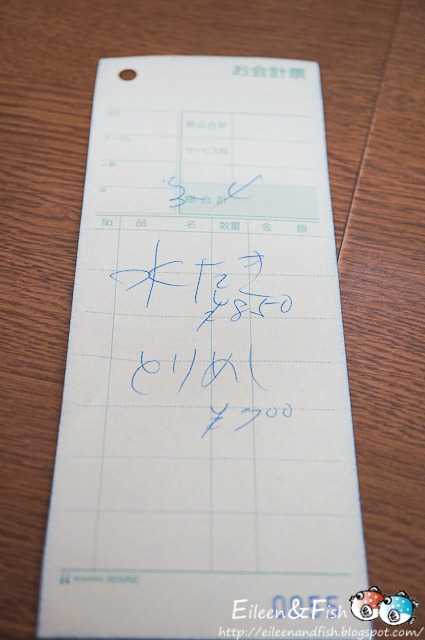 お会計票
税込合計
サービス料
総合計
3-4
No. 品 名 数量 金 額
水たき
¥850
とりめし
¥700
Eileen&Fish
http://eileenandfish.blogspot.com/